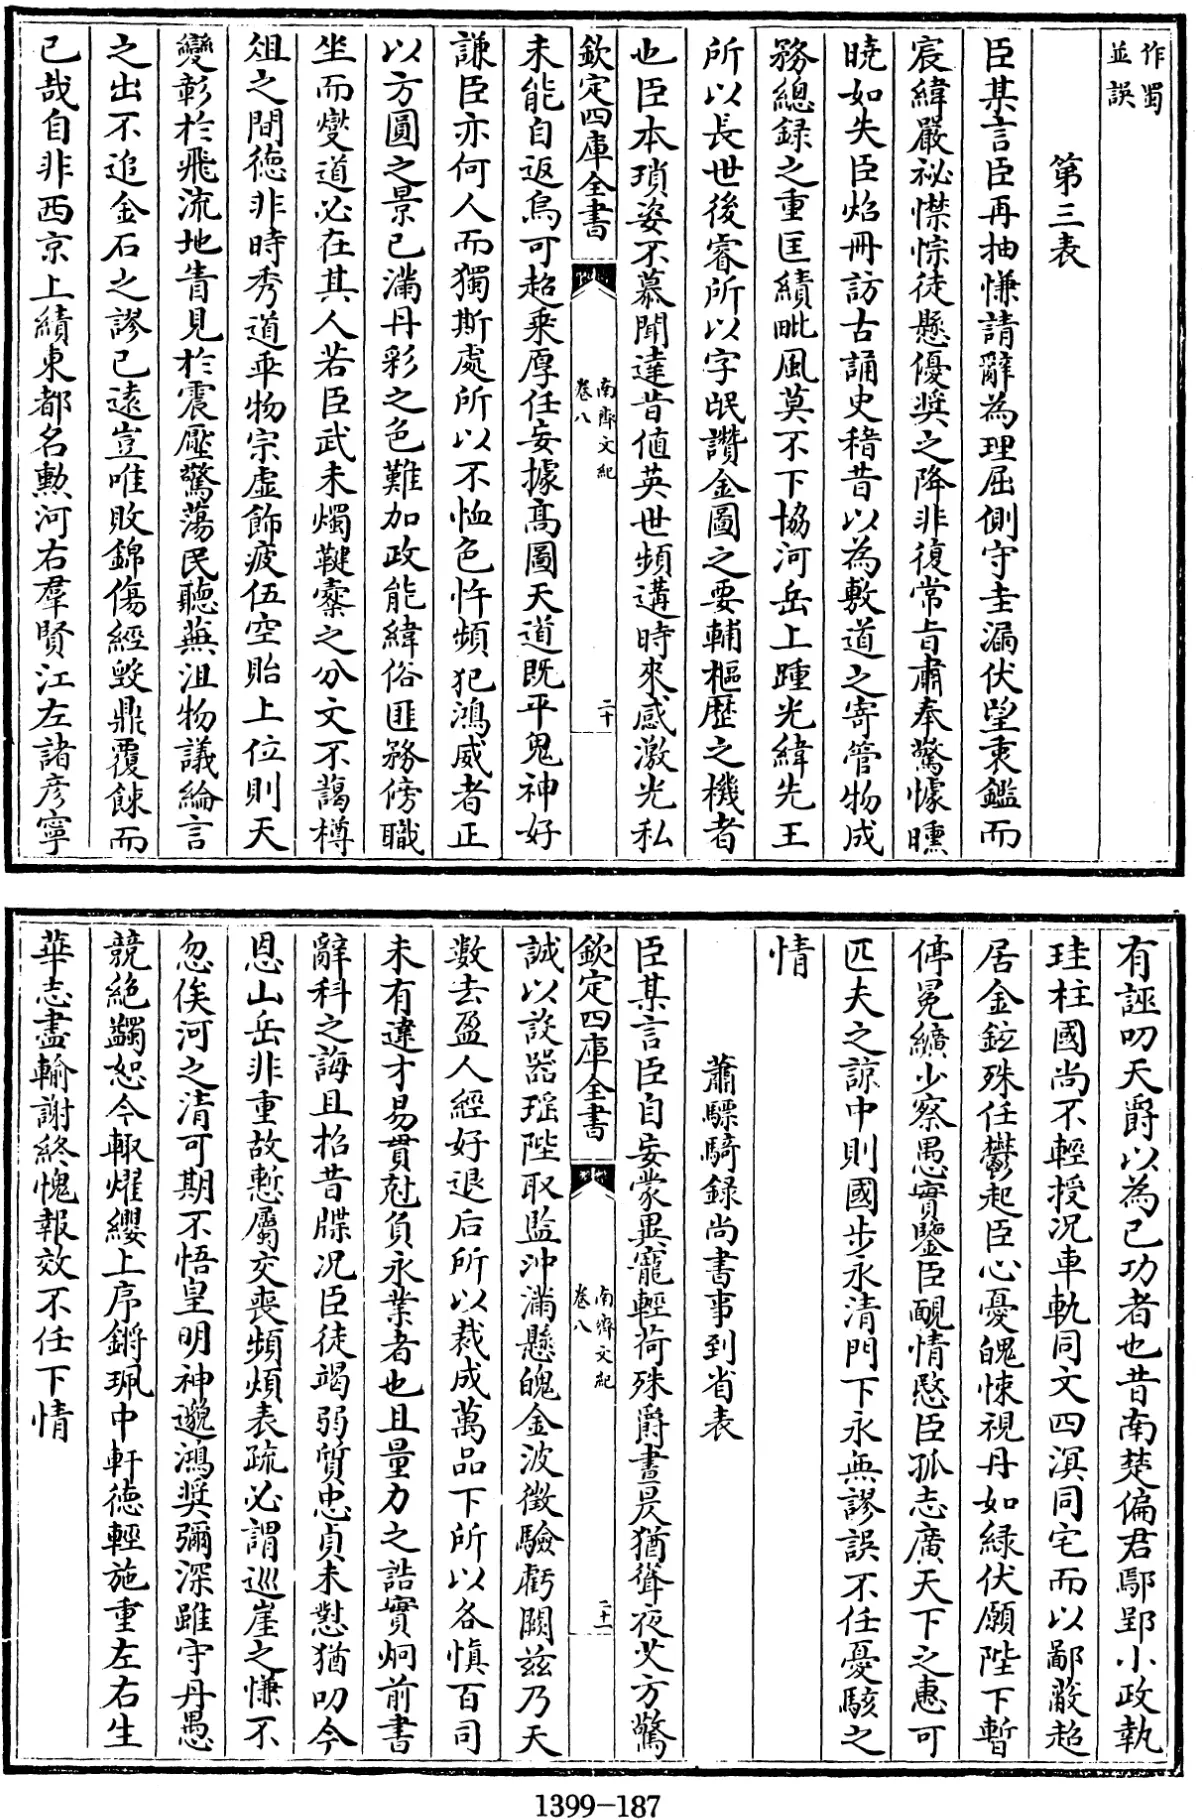 作蜀
並誤
第三表
臣某言臣再抽慊請辭為理屈側守圭漏伏望衷鑑而
宸緯嚴祕憷悰徒懸優奬之降非復常㫖肅奉驚懅曛
曉如失臣㷖冊訪古誦史稽昔以為敷道之寄管物成
務總録之重匡績毗風莫不下協河岳上踵光緯先王
所以長世後睿所以字民讚金圖之要輔樞歴之機者
也臣本瑣姿不慕聞達昔値英世頻遘時來感激光私
欽定四庫全書
南齊文紀
卷八
二十
未能自返烏可超乘厚任妄據髙圖天道既平鬼神好
謙臣亦何人而獨斯處所以不恤色忤頻犯鴻威者正
以方圓之景已滿丹彩之色難加政能緯俗匪務傍職
坐而燮道必在其人若臣武未燭鞬櫜之分文不藹樽
俎之間徳非時秀道乖物宗虚飾疲伍空貽上位則天
變彰於飛流地眚見於震壓驚蕩民聽蕪沮物議綸言
之出不追金石之謬已遠豈唯敗錦傷經毁鼎覆餗而
已哉自非西京上績東都名勲河右羣賢江左諸彦寧
有誣叨天爵以為已功者也昔南楚偏君鄢郢小政執
珪柱國尚不輕授況車軌同文四溟同宅而以鄙蔽超
居金鉉殊任鬱起臣心憂魄悚視丹如緑伏願陛下暫
停冕纊少察愚實鑒臣覼情愍臣孤志廣天下之惠可
匹夫之諒中則國步永清門下永無謬誤不任憂駭之
情
蕭驃騎録尚書事到省表
臣某言臣自妄蒙異寵輕荷殊爵晝昃猶聳夜艾方驚
欽定四庫全書
南齊文紀
卷八
二十一
誠以設器瑶陛取監沖滿懸魄金波徵驗虧闕兹乃天
數去盈人經好退后所以裁成萬品下所以各慎百司
未有違才易貫尅負永業者也且量力之誥實炯前書
辭科之誨且招昔牒況臣徒竭弱質忠貞未懟猶叨今
恩山岳非重故慙屬交喪頻煩表疏必謂巡崖之慊不
忽俟河之清可期不悟皇明神邈鴻奬彌深雖守丹愚
競絶蠲恕今輙燿纓上序鏘珮中軒徳輕施重左右生
華志盡輸謝終愧報效不任下情
1399-187